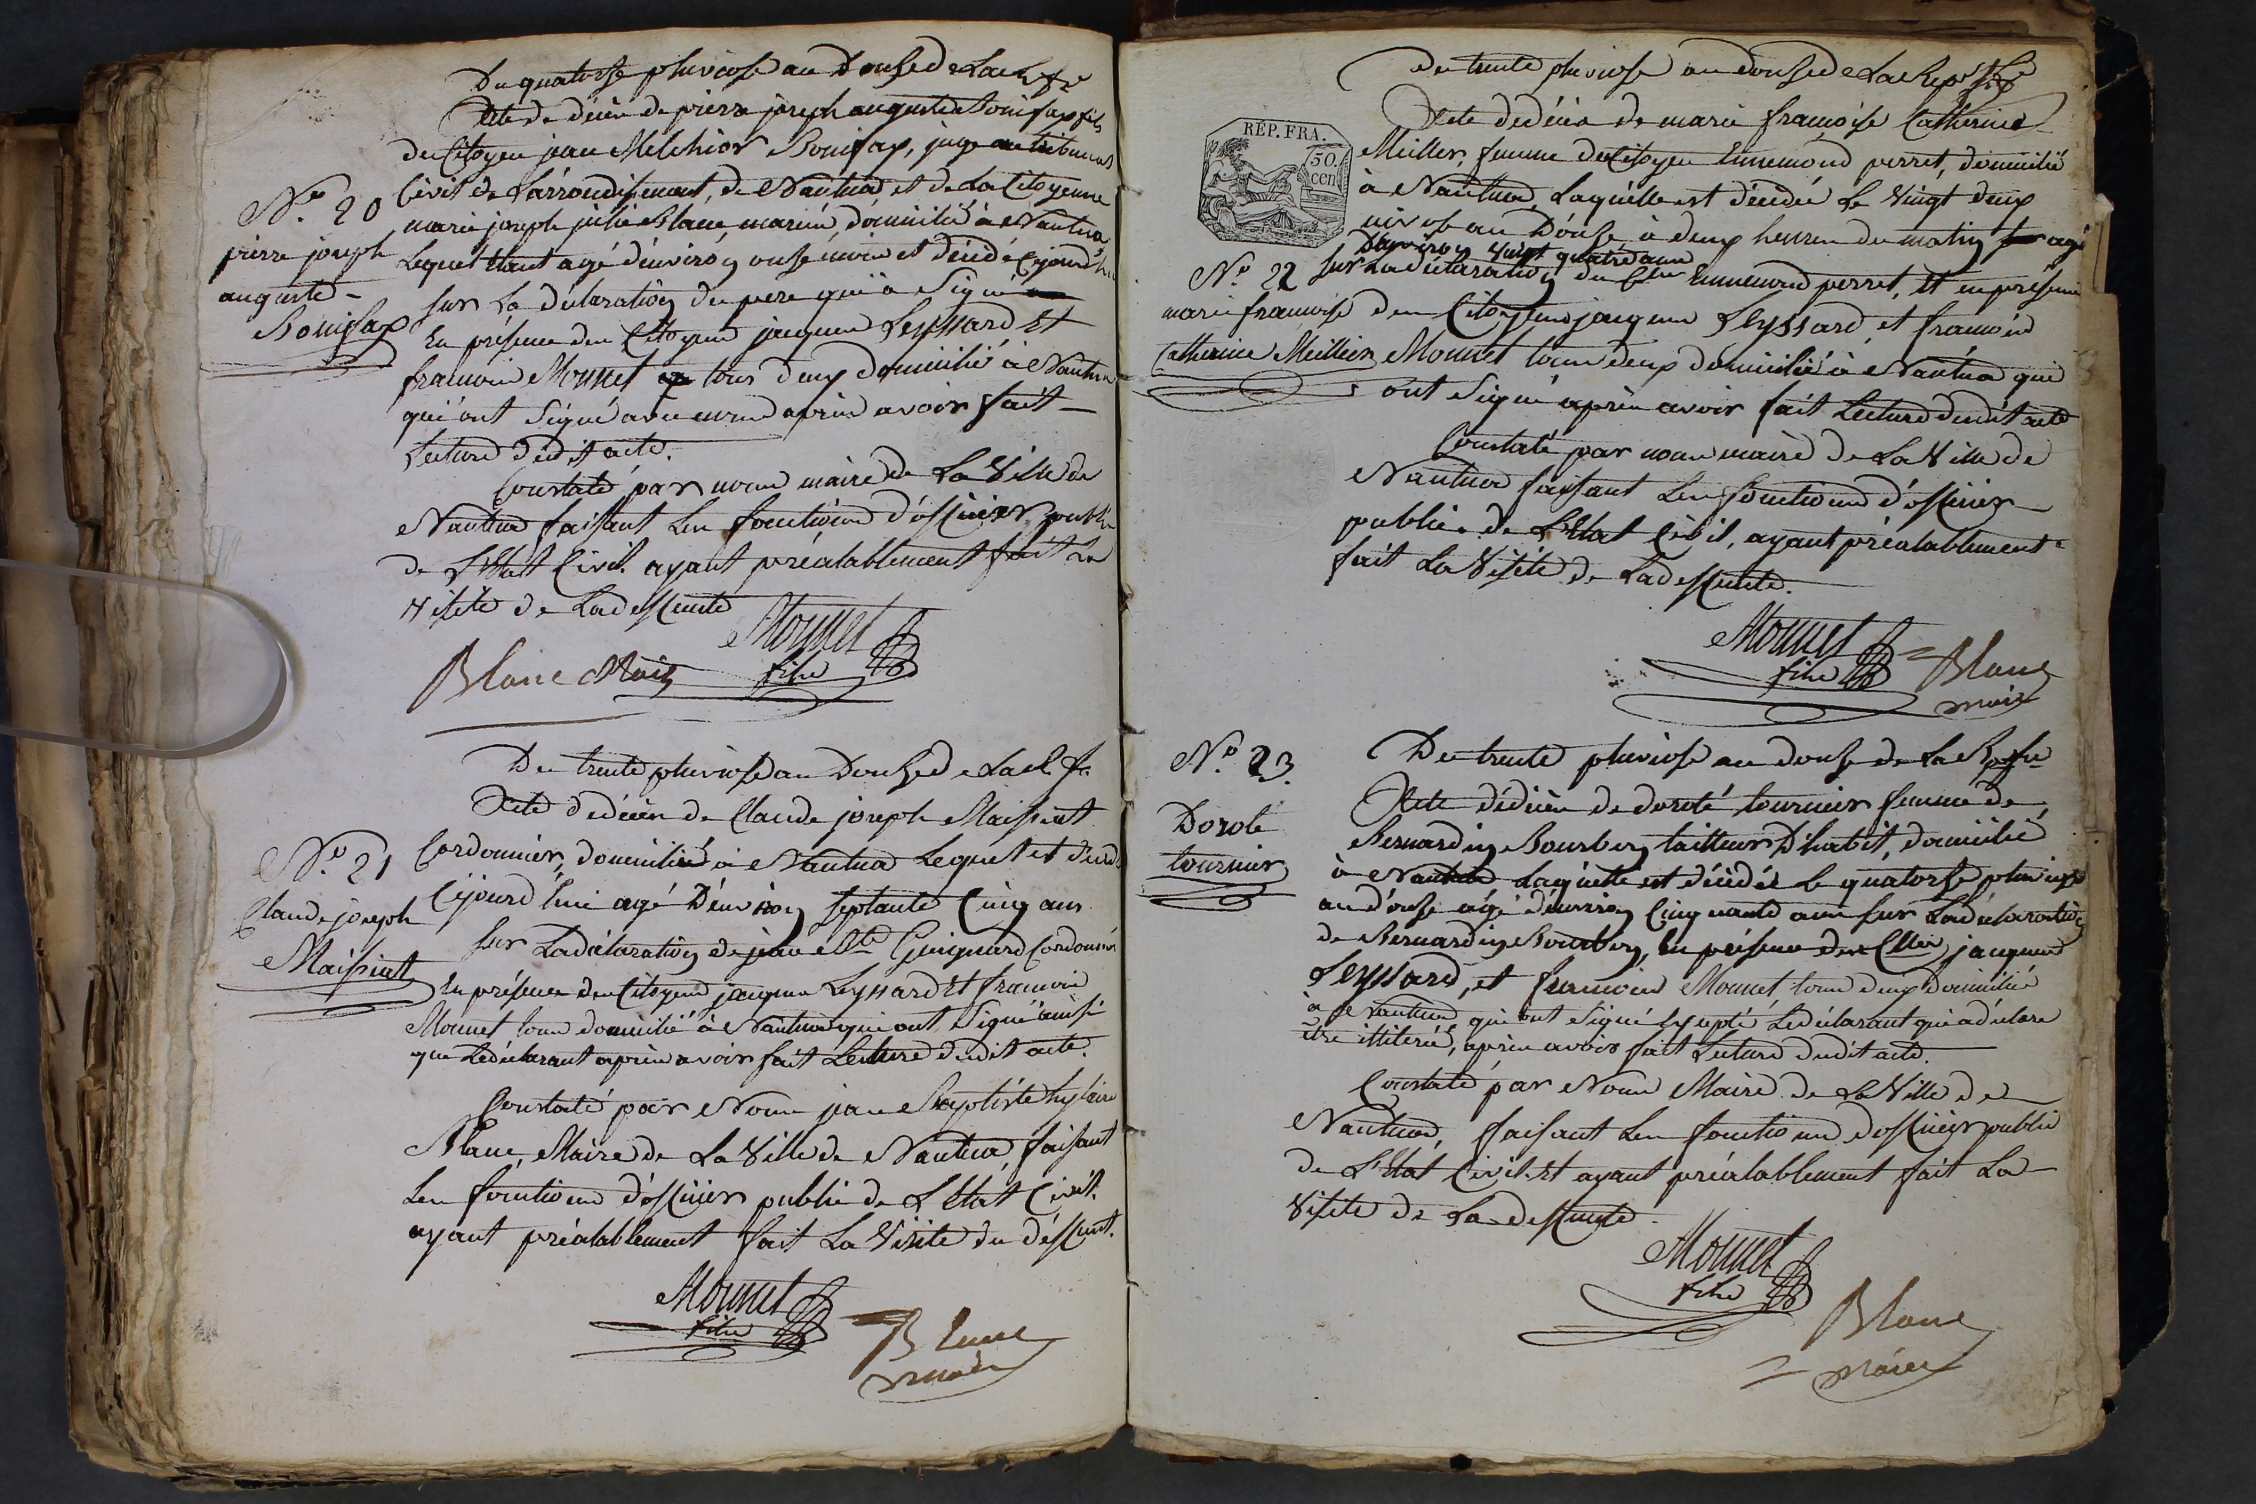 Du quatorse pluviose an Douse de La R fse
Acte de décès de pierre joseph auguste Bonifax fils
du Citoyen jean Melchior Bonifax, juge au tribunal
Civil de L'arrondissement, de Nantua et de La Citoyenne
N.º 20
marie joseph julie Blanc mariés, domicilié à Nantua
pierre joseph
auguste
Bonifax
Lequel etant agé d'environ onse mois et décédé Cejourd'hui
sur La déclaration du pere qui a Signé
En présence des Citoyens jacques Leyssard Et
francois Monnet tous deux domicilié à Nantua
qui ont Signé avec nous après avoir fait
Lecture dudit acte.
Constaté par nous maire de La Ville de
Nantua faisant Les fonctions d'officier public
de L'Etat Civil ayant préalablement fait La
Visite de La descente
Monnet
fils
Blanc Maire
Du trente pluviose an Douse de La R. f.
Acte de décès de Claude joseph Maissiat
N.º 21
Claude joseph
Maissiat
Cordonnier, domicilié à Nantua Lequel est décédé
Cejourd'hui agé D'environ septante Cinq ans
sur La déclaration de jean Bte Guignard Cordonnier
En présence des Citoyens jacques Leyssard Et francois
Monnet tous domicilié à Nantua qui ont Signé ainsi
que Le déclarant après avoir fait Lecture dudit acte.
Constaté par Nous jean Baptiste hylaire
Blanc, Maire de La Ville de Nantua, faisant
Les fonctions d'officier public de L'Etat Civil.
ayant préalablement fait La Visite du défunt.
Monnet
fils
Blanc
maire
Du trente pluviose an douse de La Rep. fse
Acte de décès de marie françoise Catherine
REP. FRA.
50.
cen
Meiller, femme du Citoyen Ennemond perret, domicilié
à Nantua, Laquelle est décédée Le Vingt deux
nivose an Douse à deux heures du matin agé
D'environ vingt quatre ans
N.º 22
marie francoise
Catherine Meiller
sur La déclaration du Cen Ennemond perret, Et en présence
des Citoyens jacques Leyssard, et francois
Monnet tous deux domicilié à Nantua qui
ont Signé après avoir fait Lecture dudit acte
Constaté par nous maire de La Ville de
Nantua faisant Les fonctions d'officier
public de L'Etat Civil, ayant préalablement
fait La Visite de La descente.
Monnet
fils
Blanc
maire
N.º 23.
Doroté
tournier
Du trente pluviose an douse de La R fse
Acte de décès de doroté tournier femme de
Bernardin Bourbon tailleur D'habit, domicilié
à Nantua Laquelle est décédée Le quatorse pluviose
an douse agé d'environ Cinquante ans sur La déclaration
de Bernardin Bourbon, En présence des Cens jacques
Leyssard, et francois Monnet tous deux domicilié
à Nantua qui ont Signé Excepté Le déclarant qui a déclaré
être illitéré, après avoir fait Lecture dudit acte.
Constaté par Nous Maire de La Ville de
Nantua, faisant Les fonctions d'officier public
de L'Etat Civil. Et ayant préalablement fait La
Visite de La descente.
Monnet
fils
Blanc
maire